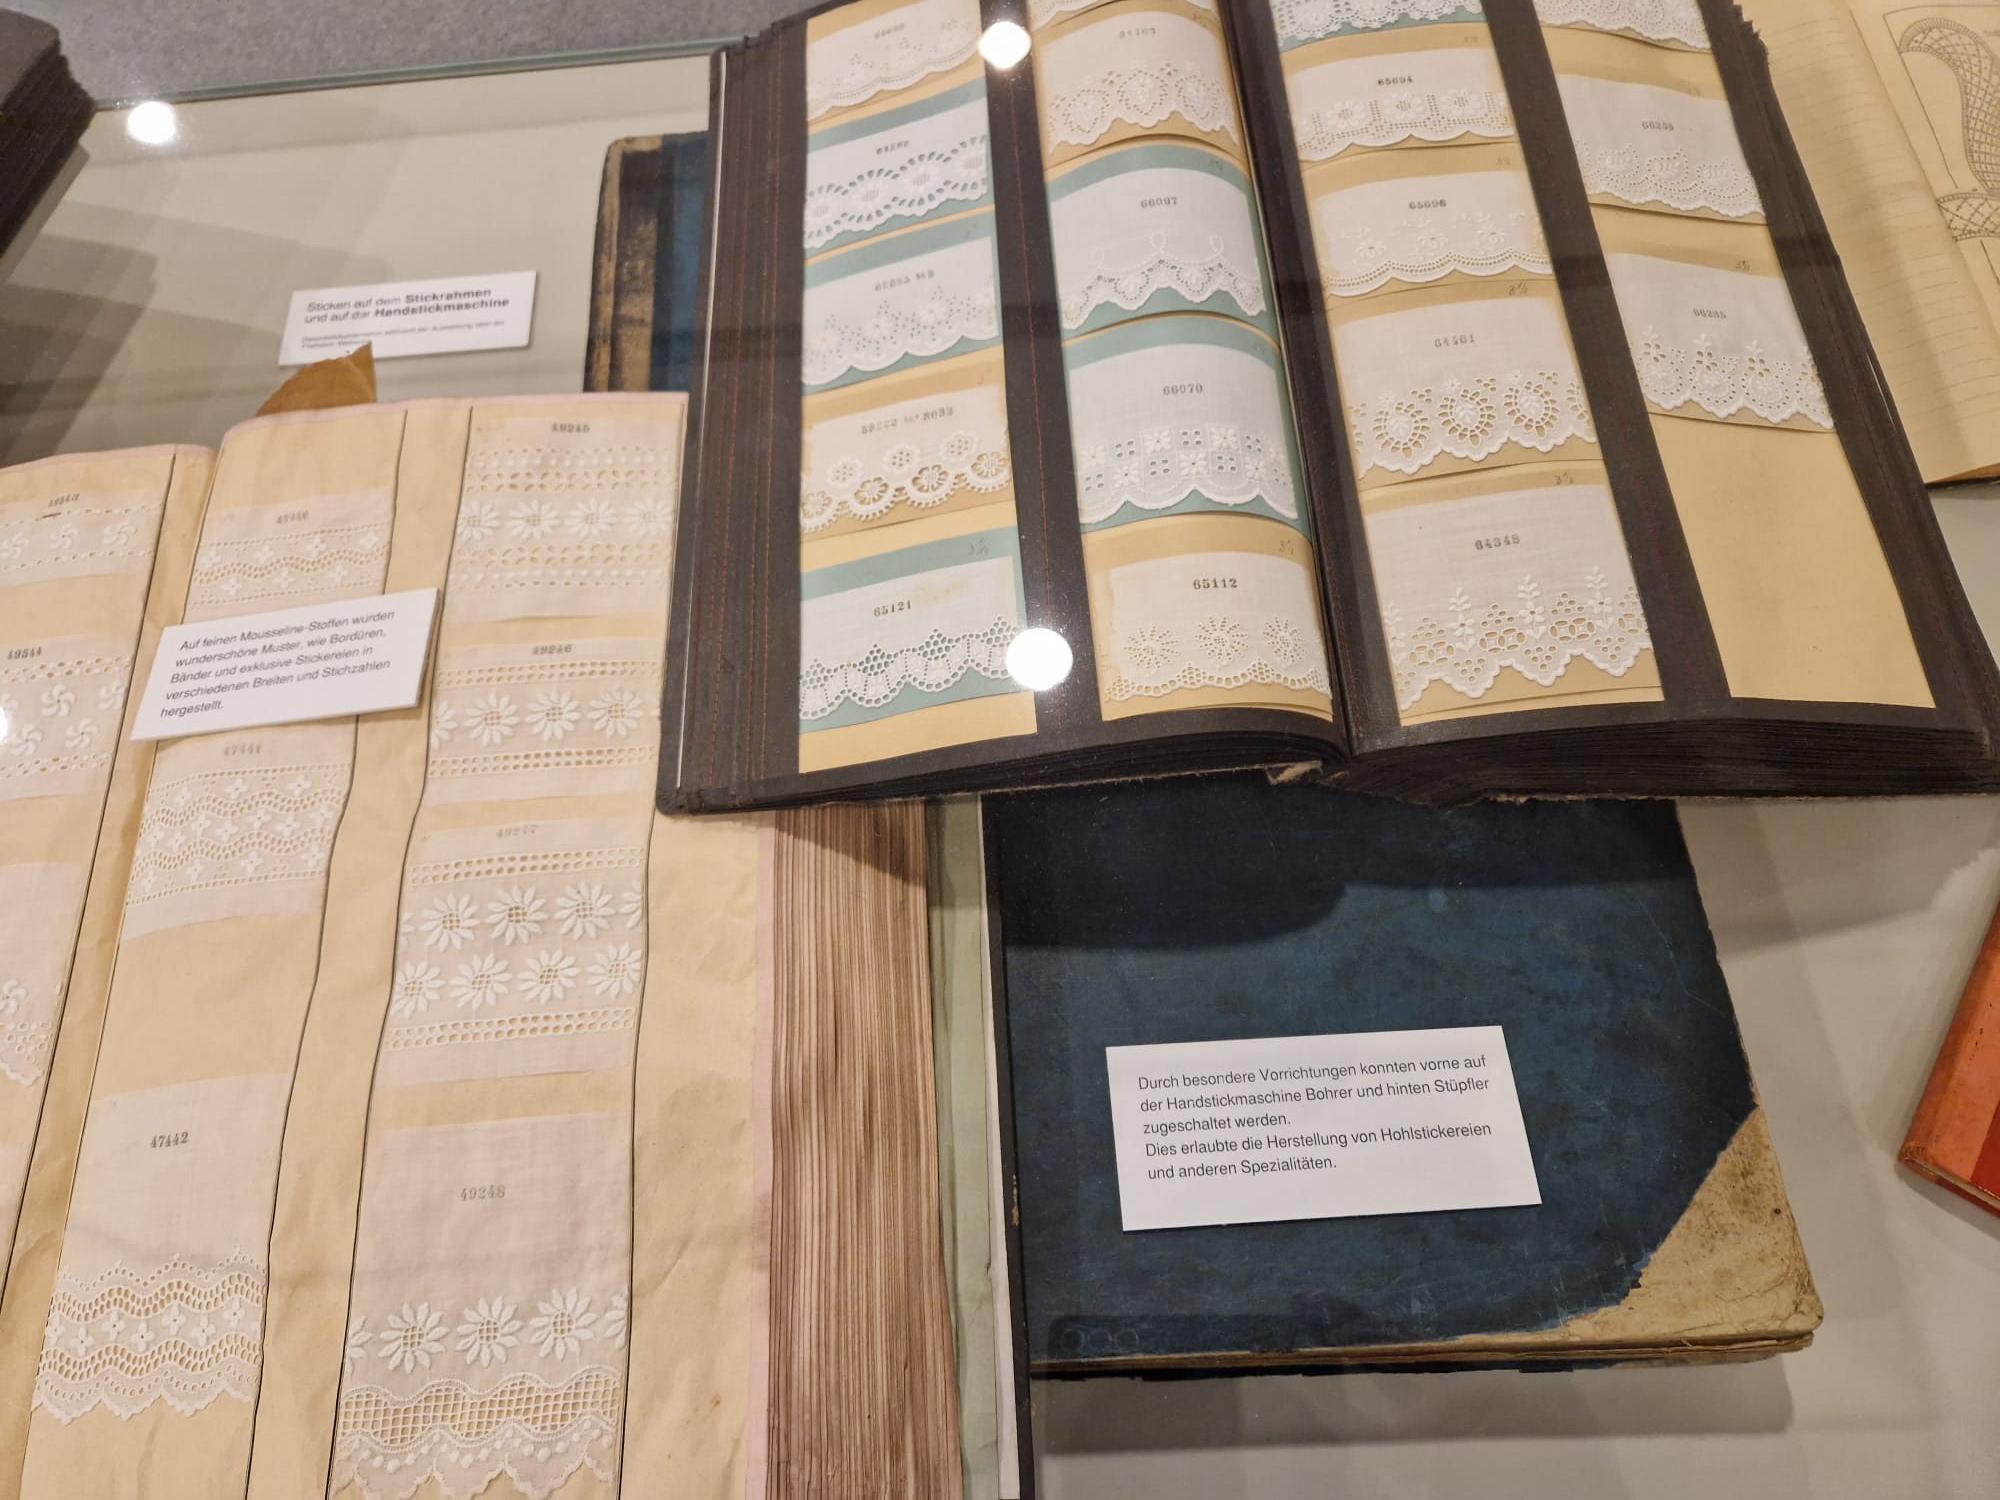 Sticken auf dem Stickrahmen
und auf der Handstickmaschine
Auf feinen Mousseline-Stoffen wurden
wunderschöne Muster, wie Bordüren,
Bänder und exklusive Stickereien in
verschiedenen Breiten und Stichzahlen
hergestellt.
Durch besondere Vorrichtungen konnten vorne auf
der Handstickmaschine Bohrer und hinten Stüpfler
zugeschaltet werden.
Dies erlaubte die Herstellung von Hohlstickereien
und anderen Spezialitäten.
49544
47446
47441
47442
49245
49246
49247
49248
65121
66087
66070
65112
65694
65696
64461
64348
66258
66235